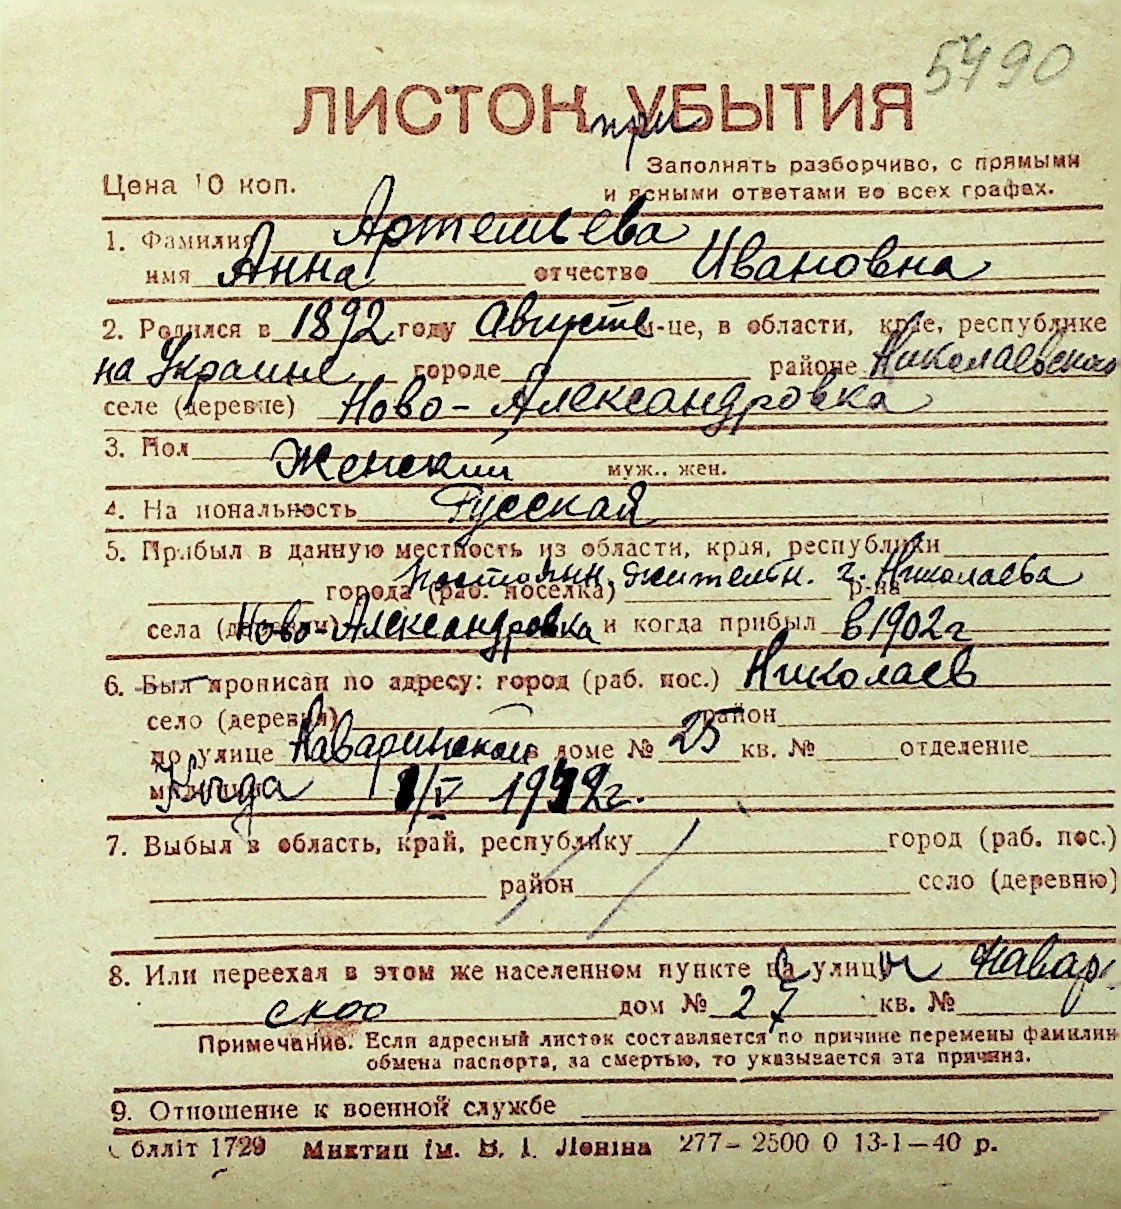 5490
ЛИСТОК при УБЫТИЯ
Заполнять разборчиво, с прямыми
Цена 10 коп. и ясными ответами во всех графах.
1. Фамилия Артемьева
имя Анна отчество Ивановна
2. Родился в 1892 году Августе м-це, в области, крае, республике
на Украине городе районе Николаевского
селе (деревне) Ново-Александровка
3. Пол Женский муж.. жен.
4. Национальность Русская
5. Прибыл в данную местность из области, края, республики
постоянн. жительн. г. Николаева
города (раб. поселка) р-на
села (деревни) Ново-Александровка и когда прибыл в 1902 г
6. Был прописан по адресу: город (раб. пос.) Николаев
село (деревня) район
по улице Наваринской в доме № 25 кв. № отделение
милиции Когда 1/V 1942г.
7. Выбыл в область, край, республику город (раб. пос.)
район село (деревню)
8. Или переехал в этом же населенном пункте с улицы Навар.
ской дом № 27 кв. №
Примечание. Если адресный листок составляется по причине перемены фамилии
обмена паспорта, за смертью, то указывается эта причина.
9. Отношение к военной службе
блліт 1729 Миктип ім. В. І. Леніна 277–2500 0 13-1–40 р.